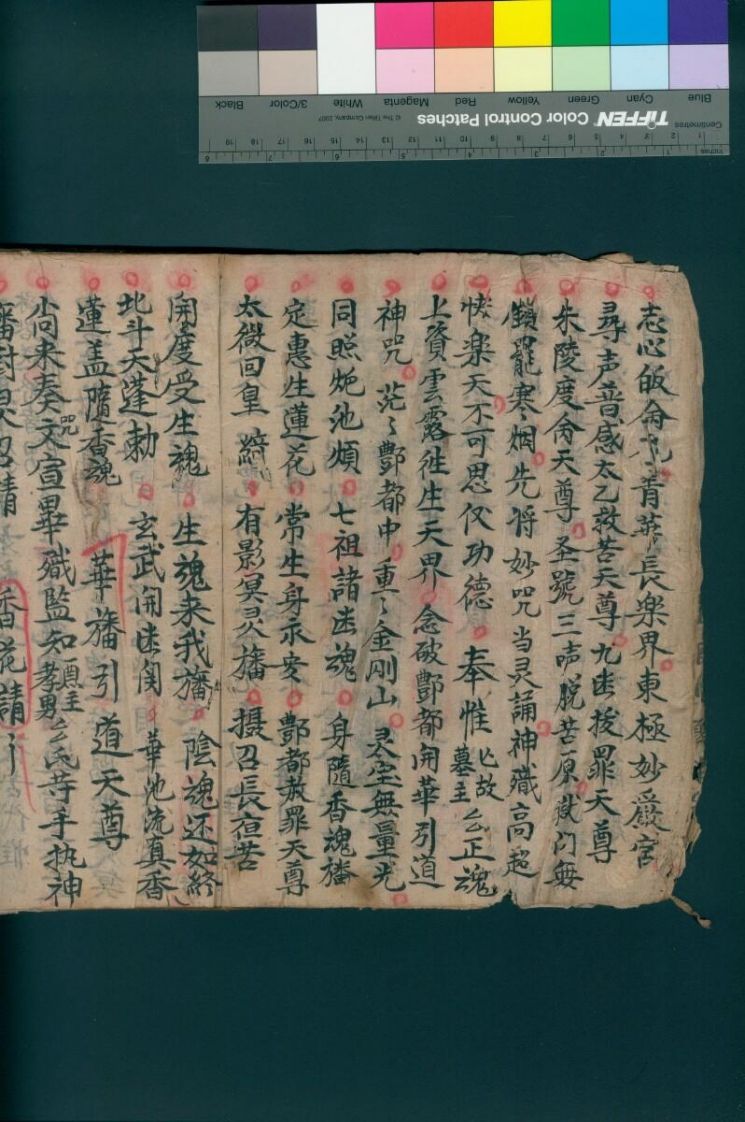 志心皈命礼青華長楽界東極妙嚴宮
尋声普感太乙救苦天尊九幽拔罪天尊
朱陵度命天尊圣號三声脱苦原獄门無
鎖罷寒烟先将妙咒当灵誦神職高超
快楽天不可思仪功德奉惟亡故墓主厶正魂
上資雲露徃生天界念破酆都開華引道
神咒茫〻酆都中重〻金剛山灵宝無量光
同照炮池煩七祖諸幽魂身隨香魂旛
定惠生蓮花常生身永安酆都赦罪天尊
太微回皇有影冥灵旛摄召長夜苦
開度受生魂生魂来我旛陰魂还如終
北斗天蓬勅玄武開幽関華池流真香
蓮盖隨香魂華旛引道天尊
尚来奏文咒宣畢職監知酉主孝男厶氏等手执神
召請香花請
TIFFEN Color Control Patches
© The Tiffen Company, 2007
Centimetres
Inches
Blue Cyan Green Yellow Red Magenta White 3/Color Black
1 2 3 4 5 6 7 8 9 10 11 12 13 14 15 16 17 18 19